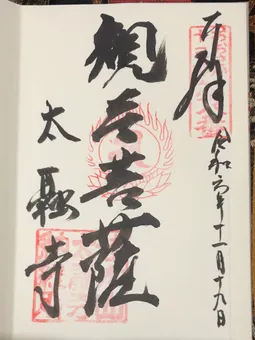 奉拝
令和六年十一月十九日
観音菩薩
太融寺